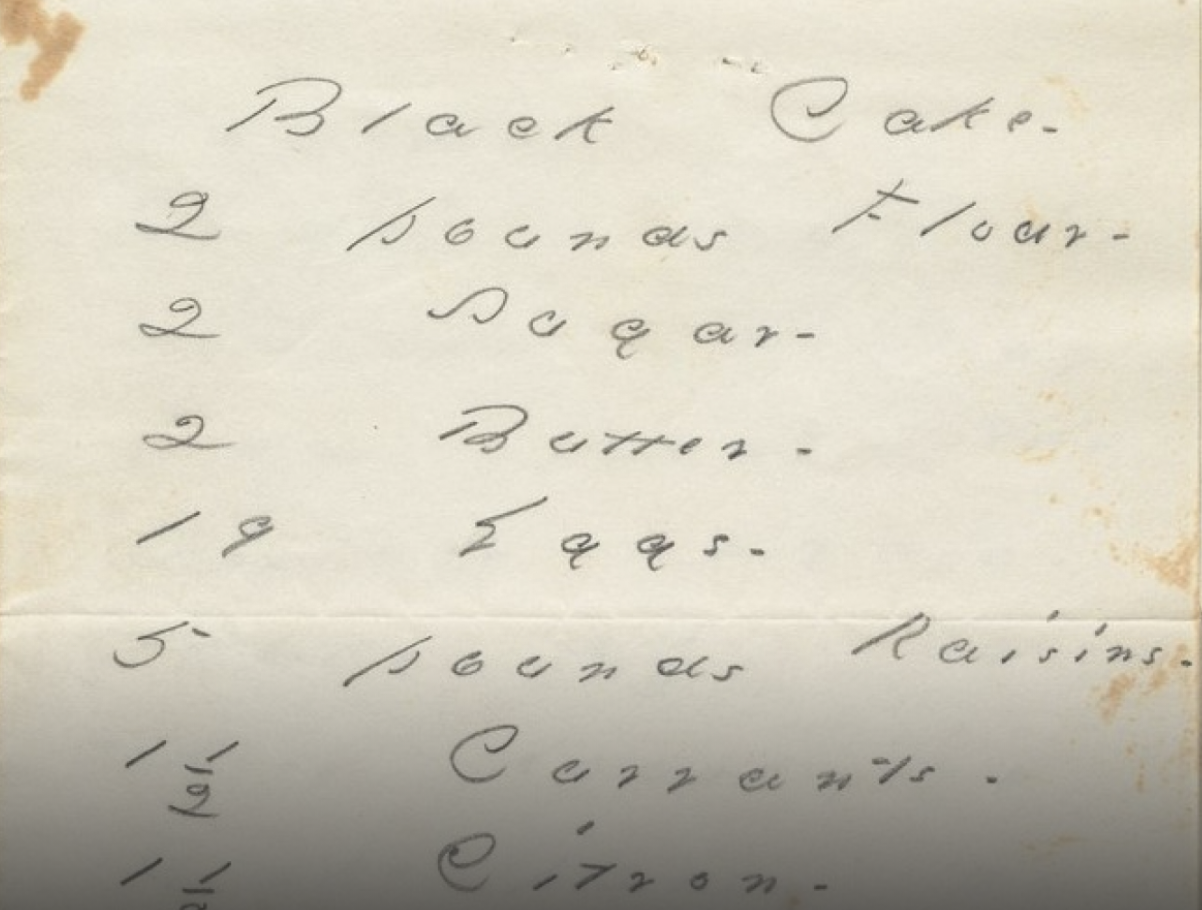 Black Cake-
2 pounds Flour-
2 Sugar-
2 Butter-
19 Eggs-
5 pounds Raisins-
1 1/2 Currants-
1 1/2 Citron-